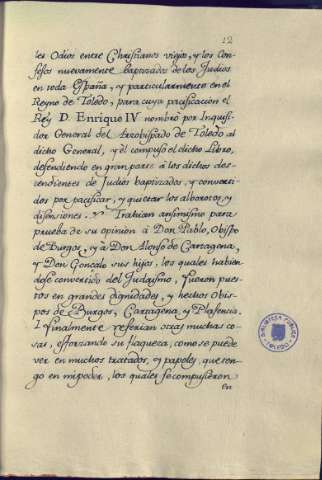 12
les Odios entre Christianos viejos, y los Con-
fesos nuevamente baptizados de los Judios
en toda España, y particularmente en el
Reyno de Toledo, para cuya pacificacion el
Rey D. Enrique IV nombró por Inquisi-
dor General del Arzobispado de Toledo al
dicho General, y el compuso el dicho Libro,
defendiendo en gran parte á los dichos des-
cendientes de Judios baptizados, y converti-
dos por pacificar, y quietar los alborotos, y
disensiones. Trahian ansimismo para
prueba de su opinion à Don Pablo, Obispo
de Burgos, y à Don Alonso de Cartagena,
y Don Gonzalo sus hijos, los quales habien-
dose convertido del Judaismo, fueron pues-
tos en grandes dignidades, y hechos Obis-
pos de Burgos, Cartagena, y Plasencia.
I finalmente referian otras muchas co-
sas, esforzando su flaqueza, como se puede
ver en muchos tratados, y papeles, que ten-
go en mi poder, los quales se compusieron
en
BIBLIOTECA PUBLICA
TOLEDO